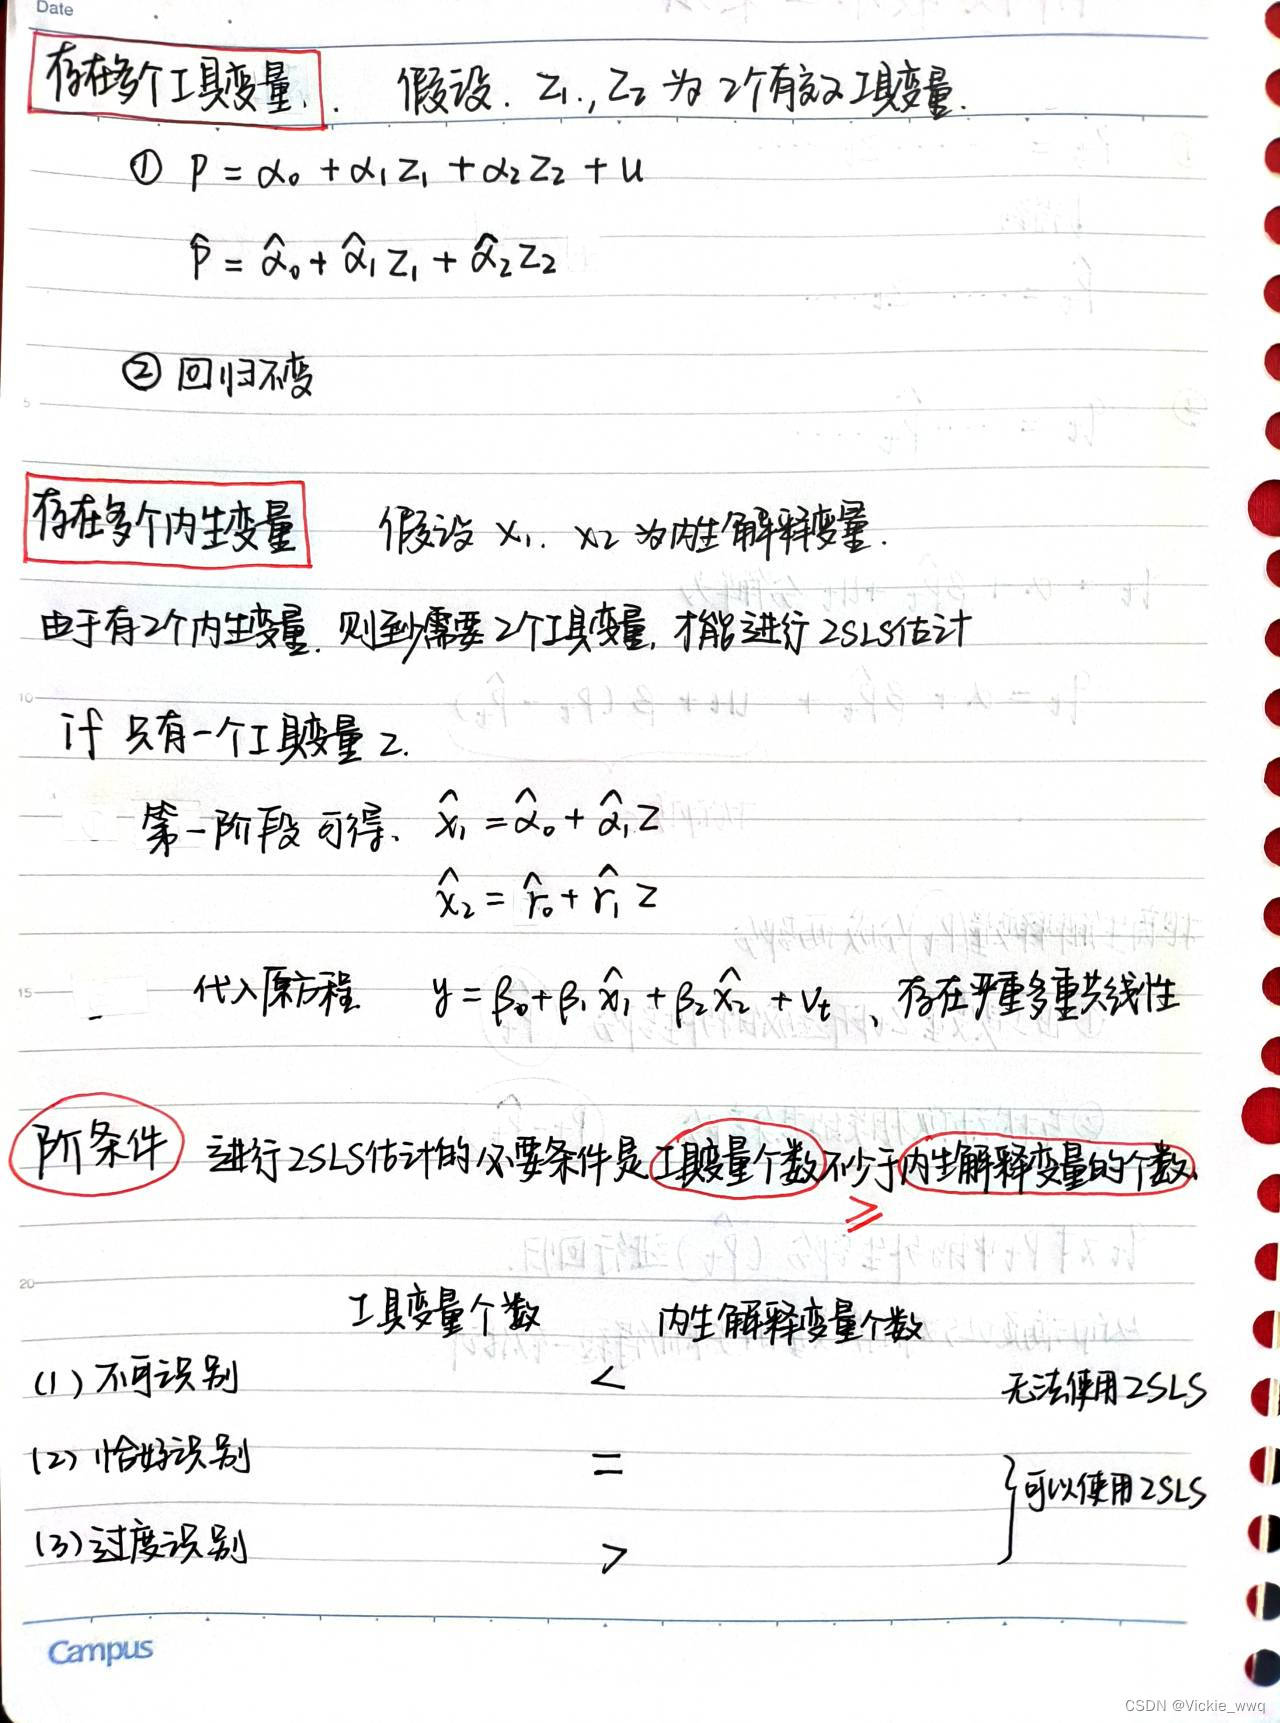 Date
存在多个工具变量. 假设. Z₁., Z₂ 为 2个有效工具变量.
① P = α₀ + α₁Z₁ + α₂Z₂ + u
P̂ = α̂₀ + α̂₁Z₁ + α̂₂Z₂
② 回归不变
5
存在多个内生变量 假设 x₁. x₂ 为内生解释变量.
由于有2个内生变量. 则至少需要2个工具变量, 才能进行2SLS估计
10
if 只有一个工具变量 Z.
第一阶段可得、 x̂₁ = α̂₀ + α̂₁Z
x̂₂ = r̂₀ + r̂₁Z
15
代入原方程. y = β₀ + β₁x̂₁ + β₂x̂₂ + Vₜ 、存在严重多重共线性
阶条件 进行2SLS估计的必要条件是工具变量个数不少于内生解释变量的个数.
≥
20
工具变量个数 内生解释变量个数
(1) 不可识别 < 无法使用2SLS
(2) 恰好识别 =
}可以使用2SLS
(3) 过度识别 >
Campus
CSDN @Vickie_wwq